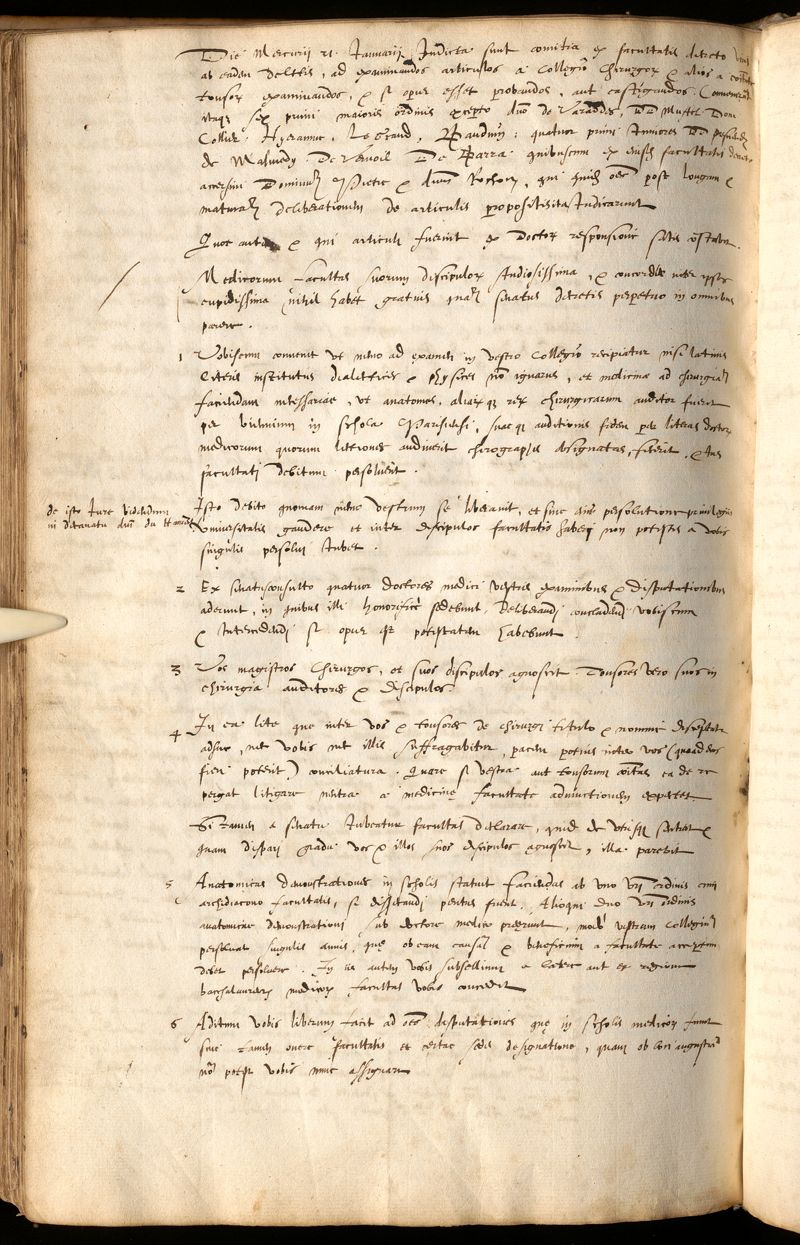 Die Mercurii 21 Januarii Indicta sunt comitia ex facultatis decreto
ab eadem delectis, ad examinandos articulos a Collegio Chirurgor &
tonsor examinandos, & si opus esset probandos, aut castigandos.
itaque sex primi maioris ordinis excepto duo de Varades,
Collier. le Grand, quatuor primi Iuniores
de Malmedy De Parra quibuscum ex eiusd facultatis
accersiti & post longam &
maturam deliberationem de articulis propositis ita Iudicarunt
Quae autem & qui articuli fuerint ex doctor responsione satis
Medicorum facultas suorum discipulor studiosissima, & concordiae inter ipsos
cupidissima nihil habet gratius quam senatus decretis perpetuo in omnibus
parere.
1 Vobiscum convenit ut nemo ad examen in vestro Collegio recipiatur nisi latinis
literis institutus dialectices & physices non ignarus, et medicinae ad chirurgiam
faciendam necessariae, ut anatomes, aliarumque rer chirurgicarum auditor fuerit
per biennium in schola Parisiensi, suaeque auditionis fidem per literas doctor
medicorum quorum lectiones audiverit chirographo obsignatas, fecerit. & Ius
facultati debitum persolverit.
de isto Iure videndum
in decanatu
Isto debito quoniam nemo vestrum se liberavit, et sine eius persolutione privilegiis
universitatis gaudere et inter discipulos facultatis haberi non potestis a vobis
singulis persolvi Iubet.
2 Ex senatusconsulto quatuor doctores medici vestris examinibus & disputationibus
aderunt, in quibus illi honorifice sedebunt. Deliberandi concludendi vobiscum
& Intercedendi si opus est potestatem habebunt.
3 Vos magistros Chirurgos, et suos discipulos agnoscit. Tonsores vero suos in
chirurgia auditores & discipulos
4 In ea lite que inter vos & tonsores de chirurgi titulo & nomine disceptatur
adhuc, nec vobis nec illis suffragabitur, pacem potius inter vos (quoad eius
fieri poterit) conciliatura. Quare si vestra aut tonsorum ea de re
pergat litigare neutra a medicinę facultate adiunctionem expectet
Si tamen a senatu Iubeatur facultas declarare, quid de utrisque sentiat &
quam dispari gradu vos & illos suos discipulos agnoscit, illa parebit
5 Anatomicas demonstrationes in scholis statuit faciendas ab uno vestri ordinis cum
archidiacono facultatis, si dissecandi peritus fuerit. Alioqui duo vestri ordinis
anatomicae demonstrationi sub doctore medico praeerunt, modo vestrum Collegium
persolvat singulis annis, quę ob eam causam & beneficium a facultate acceptum
debet persolvere. In ea autem vobis subsellium a latere aut ex regione
baccalaureor medicor facultas vobis concedit
6 Aditum vobis liberum facit ad oēs disputationes quę in scholis medicor fiunt
sine tamen onere facultatis et certae sedis designatione, quam ob loci angustiam
non potest vobis nunc assignare